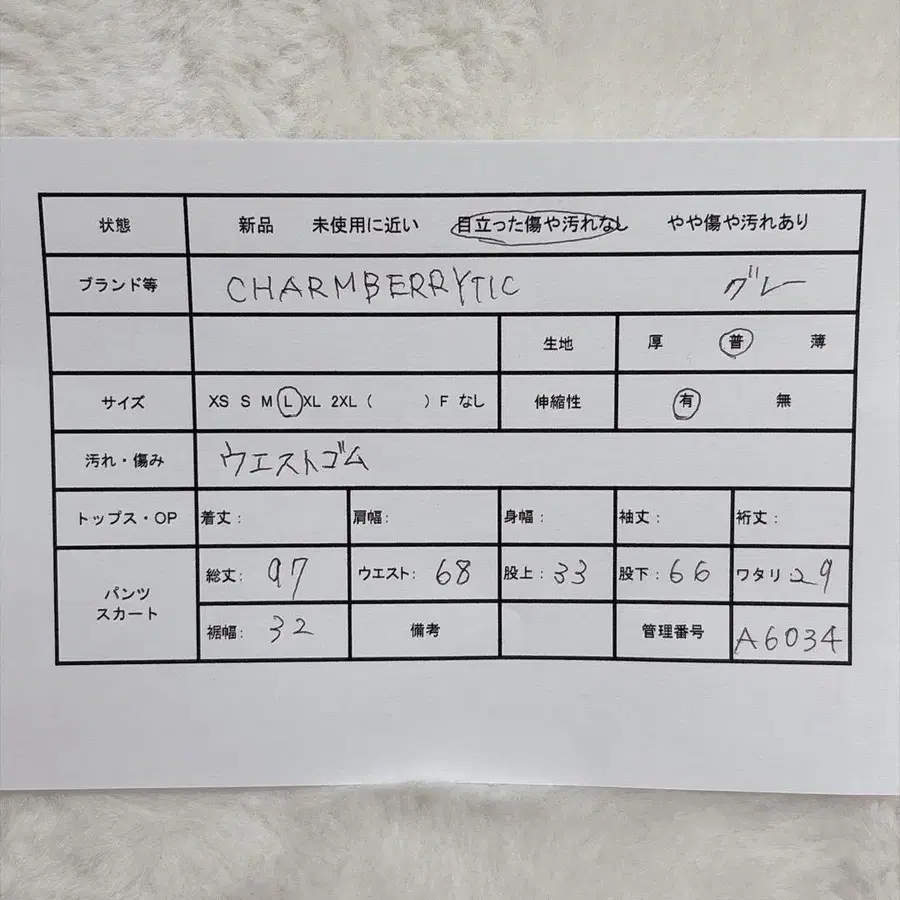 状態 新品 未使用に近い 目立った傷や汚れなし やや傷や汚れあり
ブランド等 CHARMBERRYTIC グレー
生地 厚 普 薄
サイズ XS S M L XL 2XL ( ) F なし 伸縮性 有 無
汚れ・傷み ウエストゴム
トップス・OP 着丈: 肩幅: 身幅: 袖丈: 裄丈:
パンツ スカート 総丈: 97 ウエスト: 68 股上: 33 股下: 66 ワタリ: 29
裾幅: 32 備考 管理番号 A6034